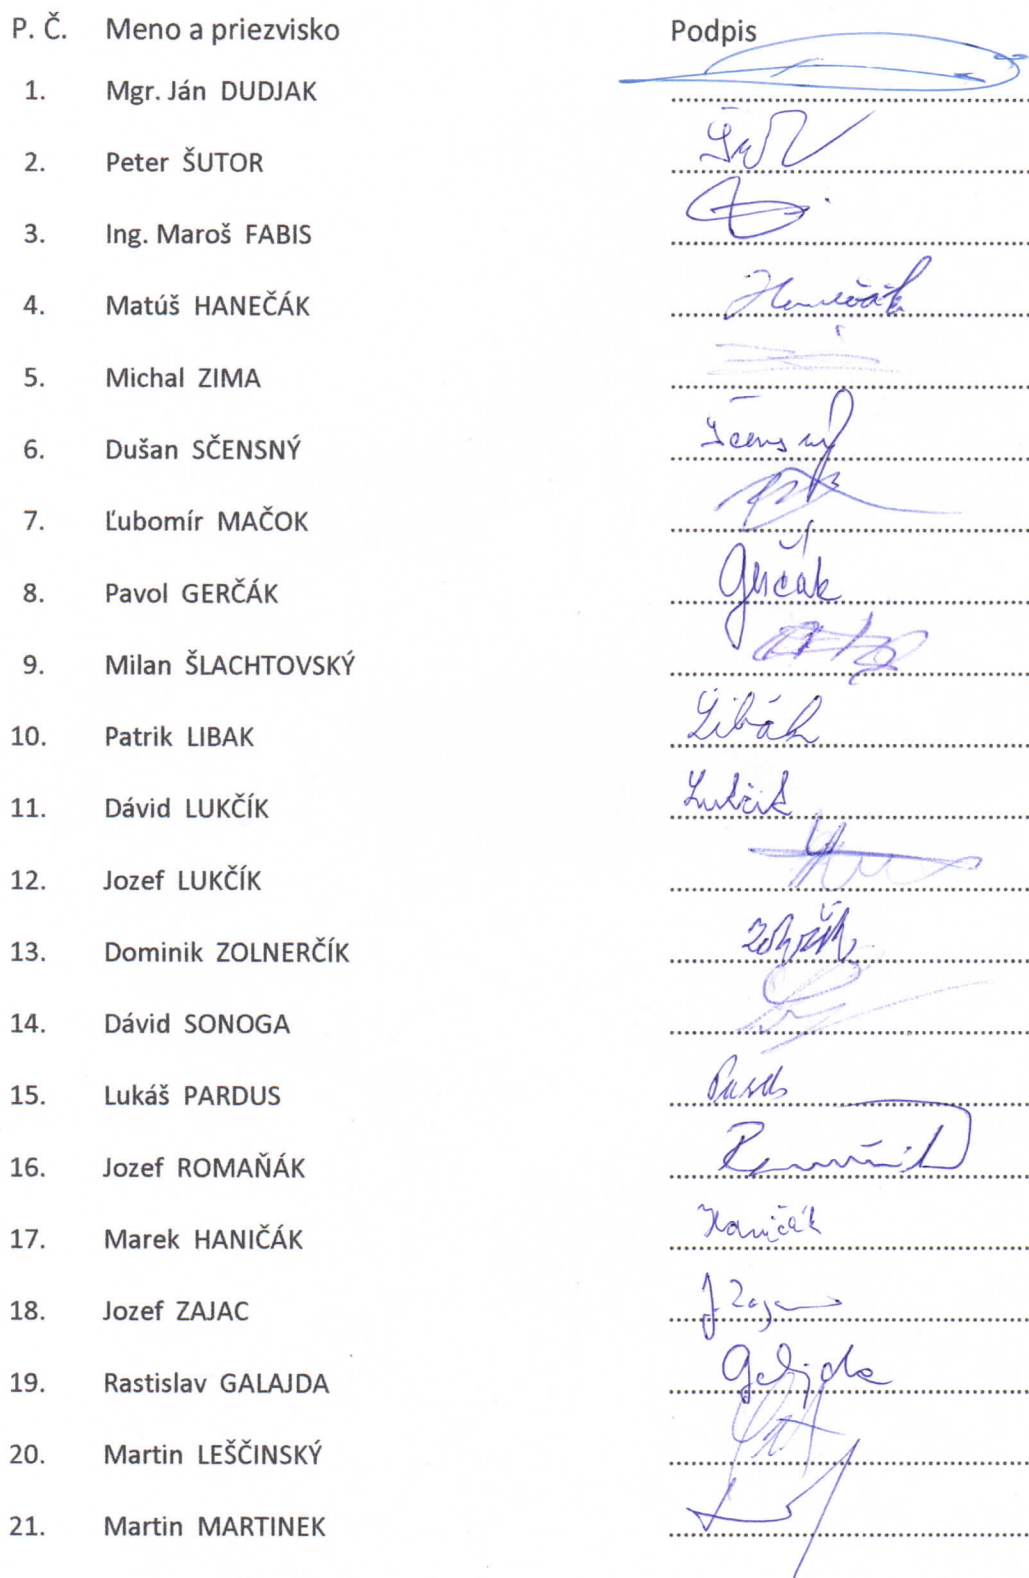 P. Č. Meno a priezvisko Podpis
1. Mgr. Ján DUDJAK
2. Peter ŠUTOR
3. Ing. Maroš FABIS
4. Matúš HANEČÁK Hanečák
5. Michal ZIMA
6. Dušan SČENSNÝ Sčensný
7. Ľubomír MAČOK
8. Pavol GERČÁK Gerčák
9. Milan ŠLACHTOVSKÝ
10. Patrik LIBAK Libák
11. Dávid LUKČÍK Lukčík
12. Jozef LUKČÍK
13. Dominik ZOLNERČÍK
14. Dávid SONOGA
15. Lukáš PARDUS
16. Jozef ROMAŇÁK
17. Marek HANIČÁK Haničák
18. Jozef ZAJAC J Zajac
19. Rastislav GALAJDA Galajda
20. Martin LEŠČINSKÝ
21. Martin MARTINEK